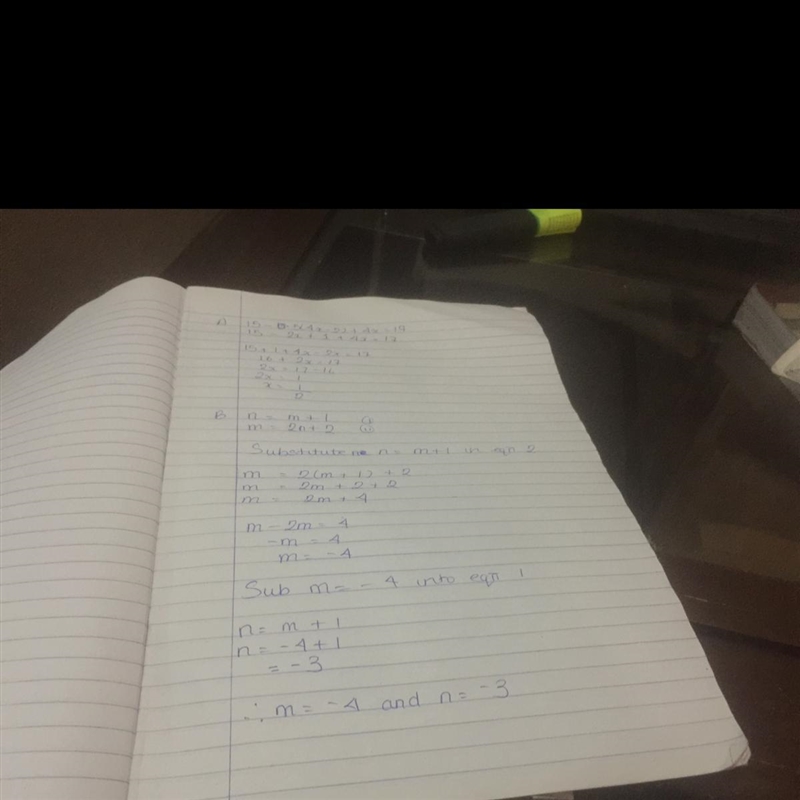 A
15 - 2x + 1 + 4x = 17
15 + 1 + 4x - 2x = 17
16 + 2x = 17
2x = 17 - 16
2x = 1
x = 1
2
B n = m + 1 ①
m = 2n + 2 ②
Substitute n = m + 1 in eqn 2
m = 2(m + 1) + 2
m = 2m + 2 + 2
m = 2m + 4
m - 2m = 4
-m = 4
m = -4
Sub m = -4 into eqn 1
n = m + 1
n = -4 + 1
= -3
∴ m = -4 and n = -3